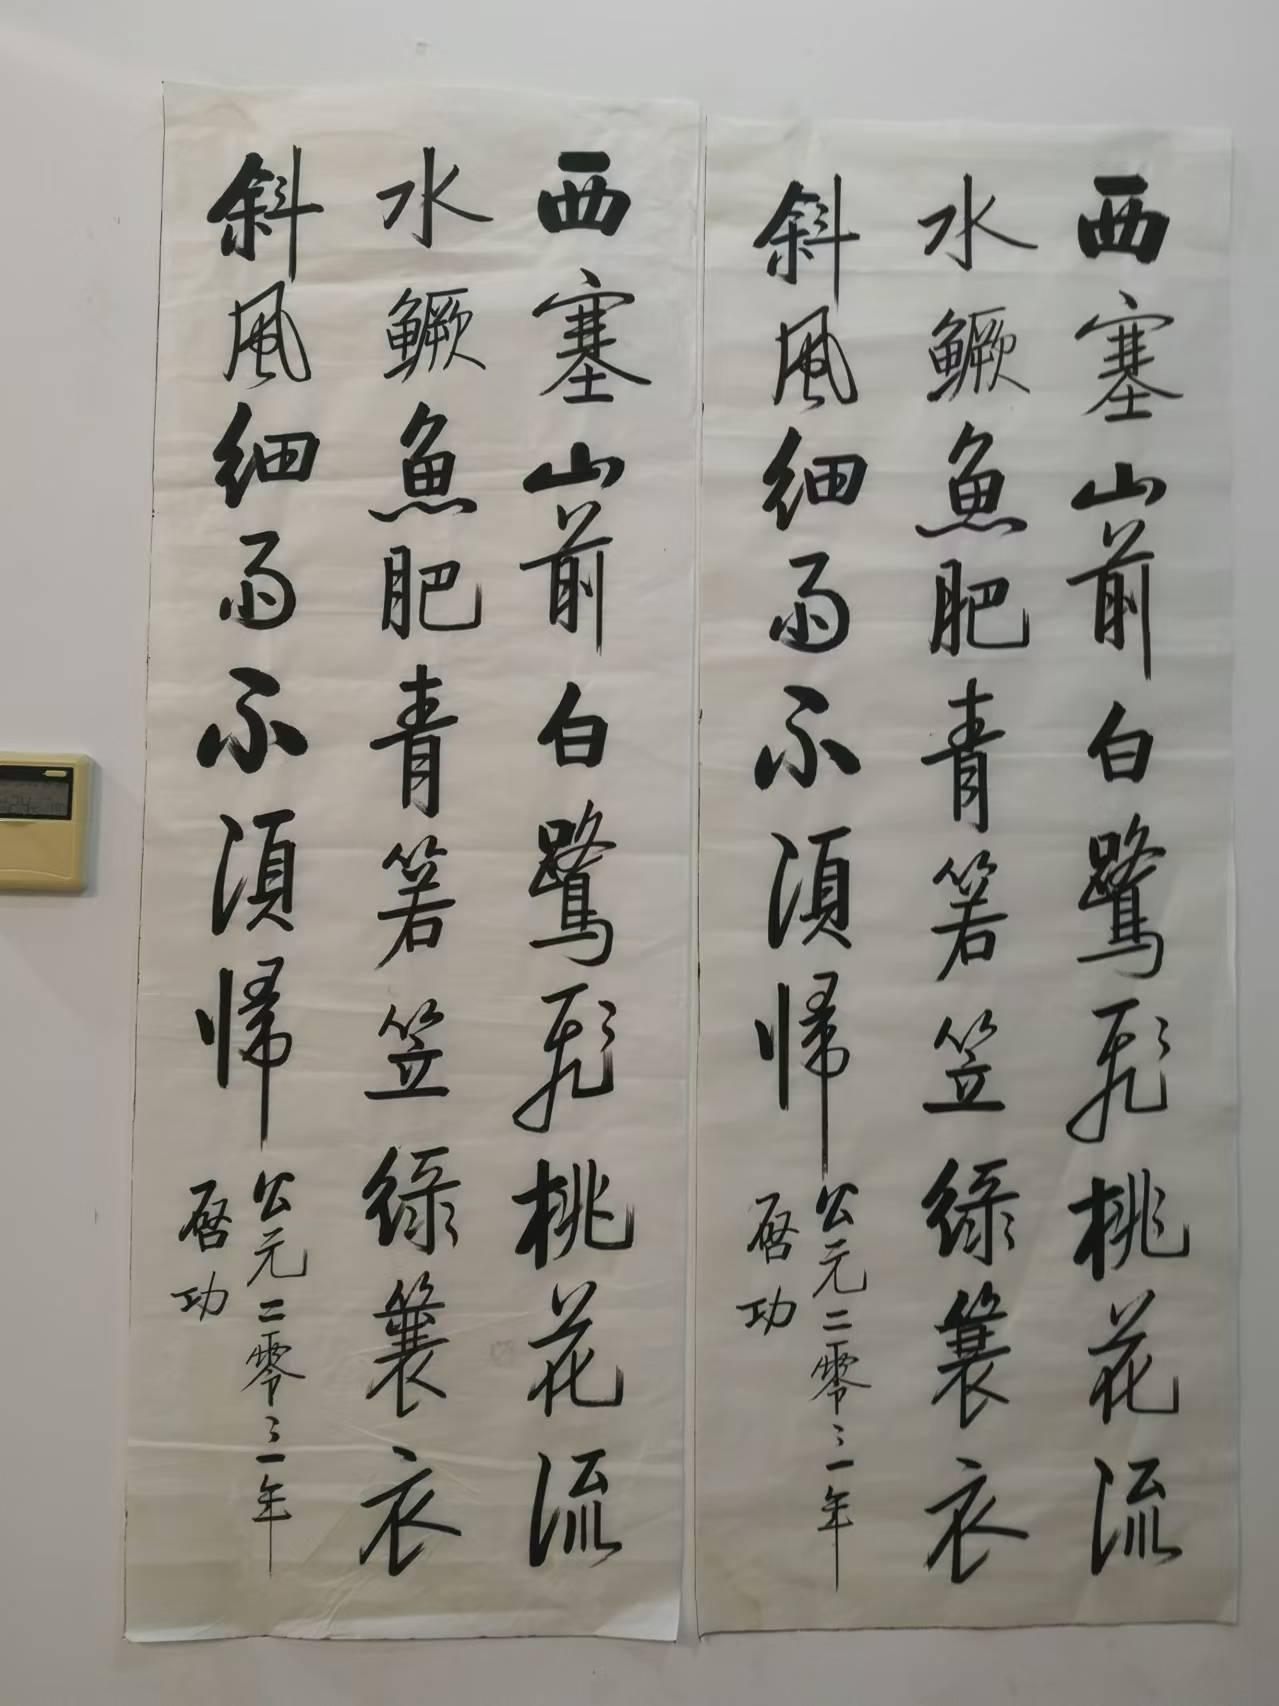 西塞山前白鷺飛桃花流
水鱖魚肥青箬笠綠簑衣
斜風細雨不須歸
公元二零〻一年
啓功
西塞山前白鷺飛桃花流
水鱖魚肥青箬笠綠簑衣
斜風細雨不須歸
公元二零〻一年
啓功